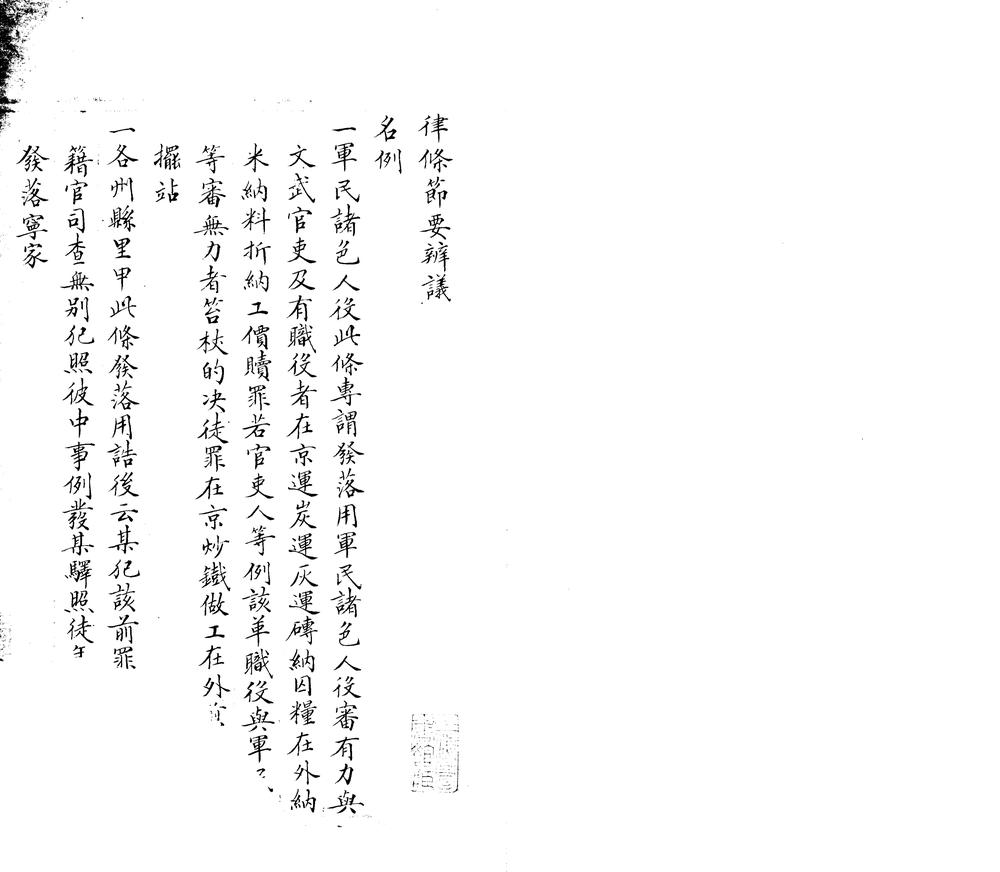 律條節要辨議
名例
一軍民諸色人役此條專謂發落用軍民諸色人役審有力與
文武官吏及有職役者在京運炭運灰運磚納囚糧在外納
米納料折納工價贖罪若官吏人等例該革職役與軍
等審無力者笞杖的决徒罪在京炒鐵做工在外
擺站
一各州縣里甲此條發落用誥後云某犯該前罪
籍官司查無别犯照彼中事例發某驛照徒年
發落寧家